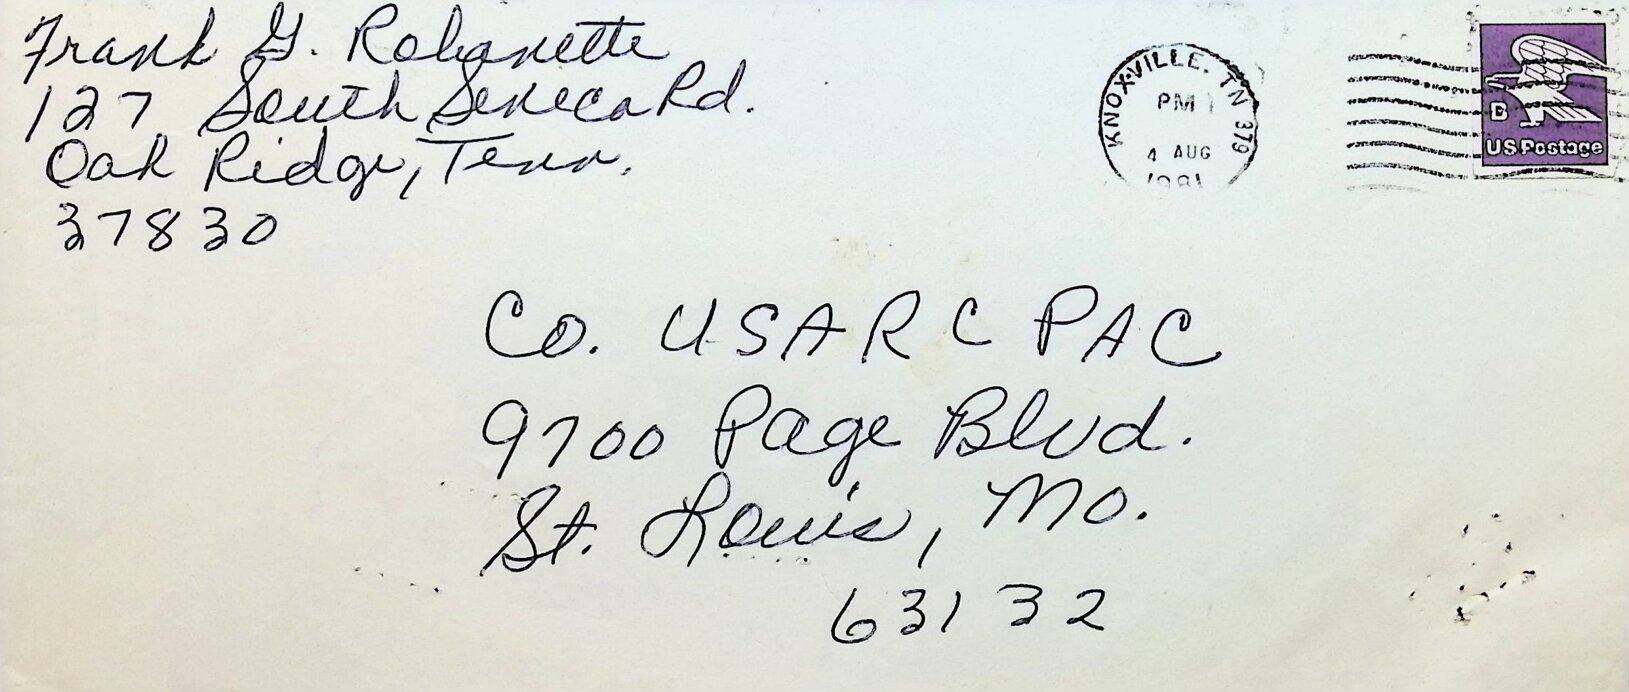 Frank G. Robanette
127 South Seneca Rd.
Oak Ridge, Tenn.
37830
KNOXVILLE. TN 379
PM
4 AUG
1981
B
US Postage
Co. USARCPAC
9700 Page Blvd.
St. Louis, Mo.
63132